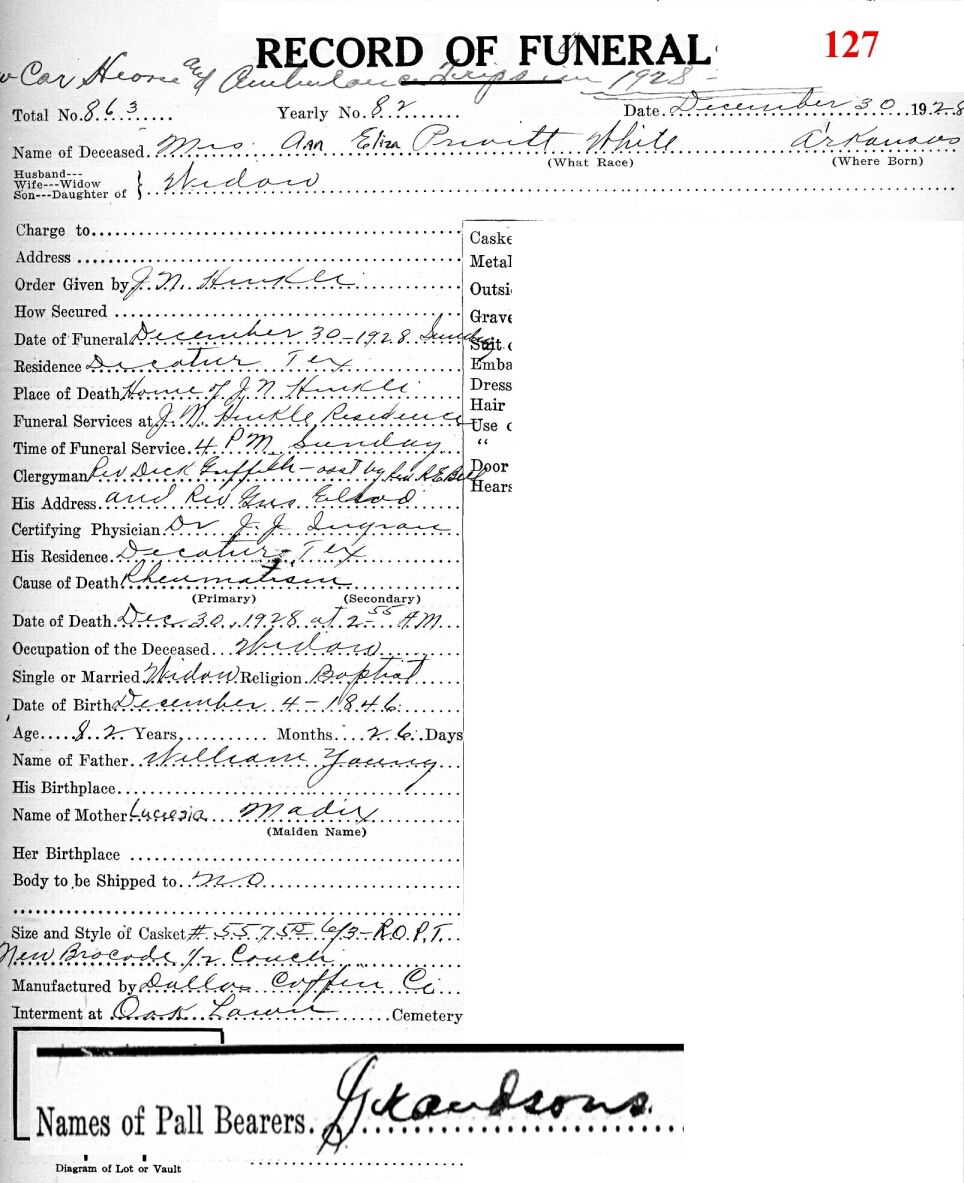 RECORD OF FUNERAL
127
Car Hearse and Ambulance Trips in 1928 -
Total No. 863 Yearly No. 82 Date December 30 1928
Name of Deceased Mrs. Ann Eliza Pruvitt White Arkansas
(What Race) (Where Born)
Husband---
Wife---Widow
Son---Daughter of } Widow
Charge to
Address
Order Given by J. N. Hinkle
How Secured
Date of Funeral December 30-1928 Sunday
Residence Decatur Tex
Place of Death Home of J N Hinkle
Funeral Services at J. N. Hinkle Residence
Time of Funeral Service 4 PM Sunday
Clergyman Rev Dick Griffith - asst by Rev R.E. Bell
His Address and Rev Gus Elrod
Certifying Physician Dr J. J. Ingram
His Residence Decatur, Tex
Cause of Death Rheumatism
(Primary) (Secondary)
Date of Death Dec 30, 1928 at 2 55 AM
Occupation of the Deceased Widow
Single or Married Widow Religion Baptist
Date of Birth December 4-1846
Age 82 Years, Months 26 Days
Name of Father William Young
His Birthplace
Name of Mother Lucresia Madix
(Maiden Name)
Her Birthplace
Body to be Shipped to No
Size and Style of Casket # 557 50 6/3-R.O.P.T.
New Brocade 1/2 Couch
Manufactured by Dallas Coffin Co
Interment at Oak Lawn Cemetery
Caske
Metal
Outsi
Grave
Suit o
Emba
Dress
Hair
Use o
"
Door
Hears
Names of Pall Bearers. Grandsons.
Diagram of Lot or Vault